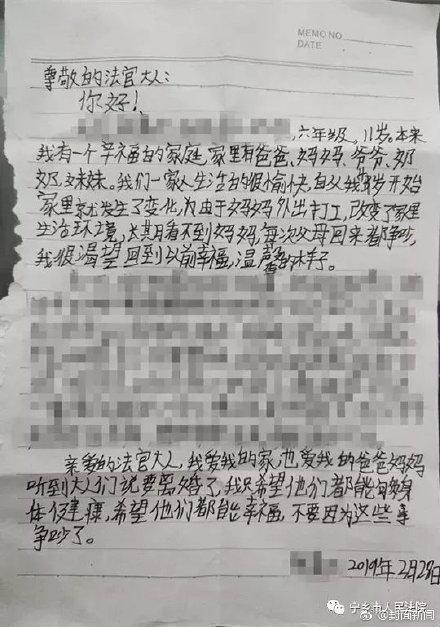 MEMO NO.
DATE
尊敬的法官大人:
你好!
,六年级,11岁。本来
我有一个辛福的家庭,家里有爸爸、妈妈、爷爷、奶
奶、妹妹。我们一家人生活的很愉快,自从我岁开始
家里就发生了变化,为由于妈妈外出打工,改变了家里
生活环境,长其月看不到妈妈,每次父母回来都争吵,
我很渴望回到以前幸福,温馨的样子。
亲爱的法官大人,我爱我的家,也爱我的爸爸妈妈
听到大人们说要离婚了,我只希望他们都能够身
体健康,希望他们都能幸福,不要因为这些事
争吵了。
2019年2月28日
宁乡市人民法院
@封面新闻